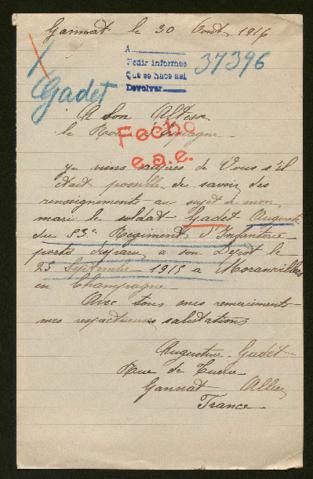 Gannat le 30 Août 1916
A
Pedir informes
Que se hace así
Devolver
37396
Gadet
A Son Altesse
le Roi d'Espagne
Fecho
e.a.e.
je viens auprès de Vous s'il
était possible de savoir des
renseignements au sujet de mon
mari le soldat Gadet Auguste
du 53e Régiment d'Infanterie
porté disparu a son Dépot le
25 Septembre 1915 a
en Champagne
Avec tous mes remerciements
mes respectueuses salutations
Augustine Gadet
Rue de
Gannat Allier
France